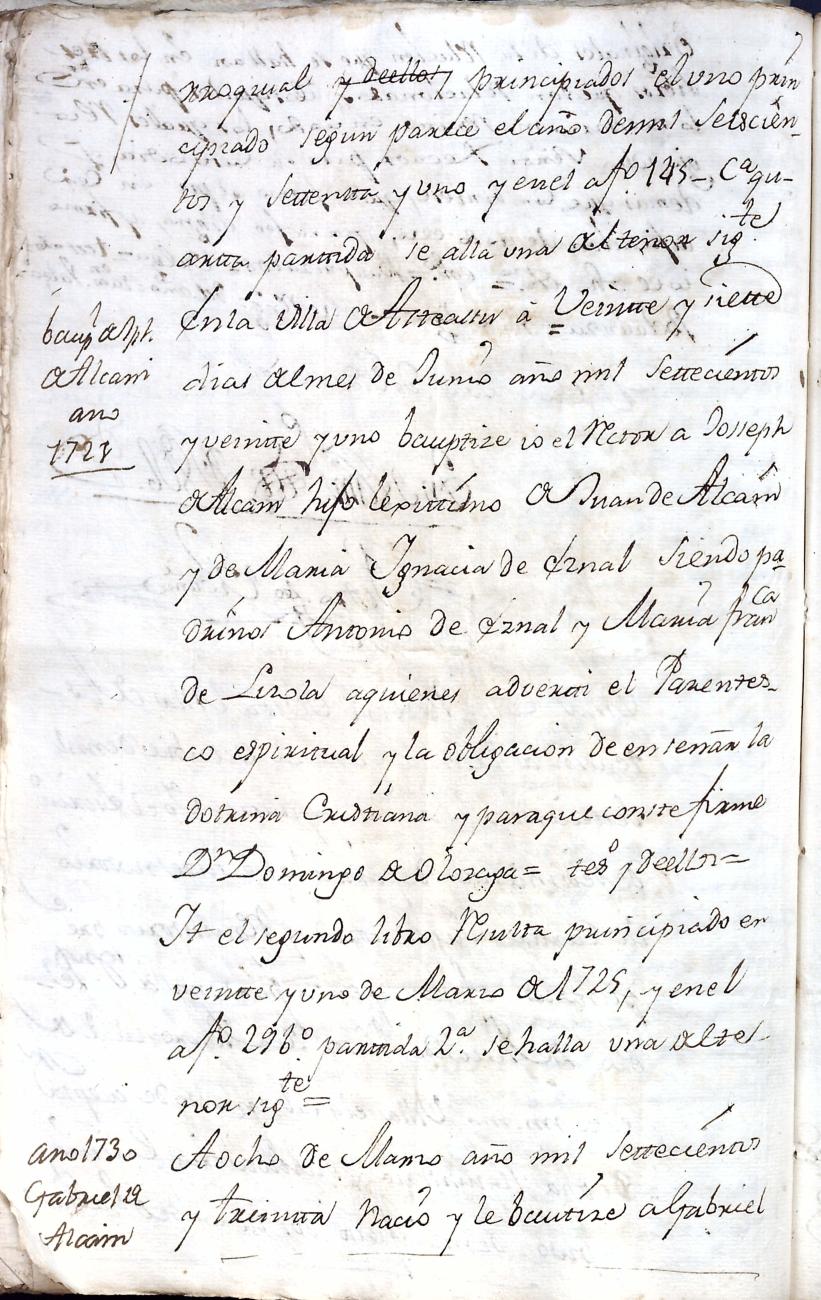 rroquial y deellos, principiados el uno prin
cipiado segun parece el año demil Seiscien-
tos y Settentta y uno y en el afº 145- Cª qu-
artta parttida se alla una del tenor sigte
En la Villa de a Veintte y siette
baup de Jph.
de Alcain
ano
1721
dias del mes de Junio año mil Settecientos
y veintte y uno bauptize io el Rector a Joseph
de Alcain hijo lexittimo de Juan de Alcain
y de Maria Ignacia de Eznal siendo pa-
drinos Antonio de Eznal y Maria franca
de Lizola aquienes adverti el Parentes-
co espiritual y la obligacion de ensenar la
dotrina Cristiana y paraque conste firme
Dn Domingo de Olozaga= tesº y deellos=
It el segundo libro Resulta principiado en
veintte y uno de Marzo de 1725, y en el
afº 296º parttida 2ª. se halla una del te-
nor sigte=
ano 1730
Gabriel de
Alcain
A ocho de Marzo año mil Settecientos
y treintta nacio y le bautize a Gabriel